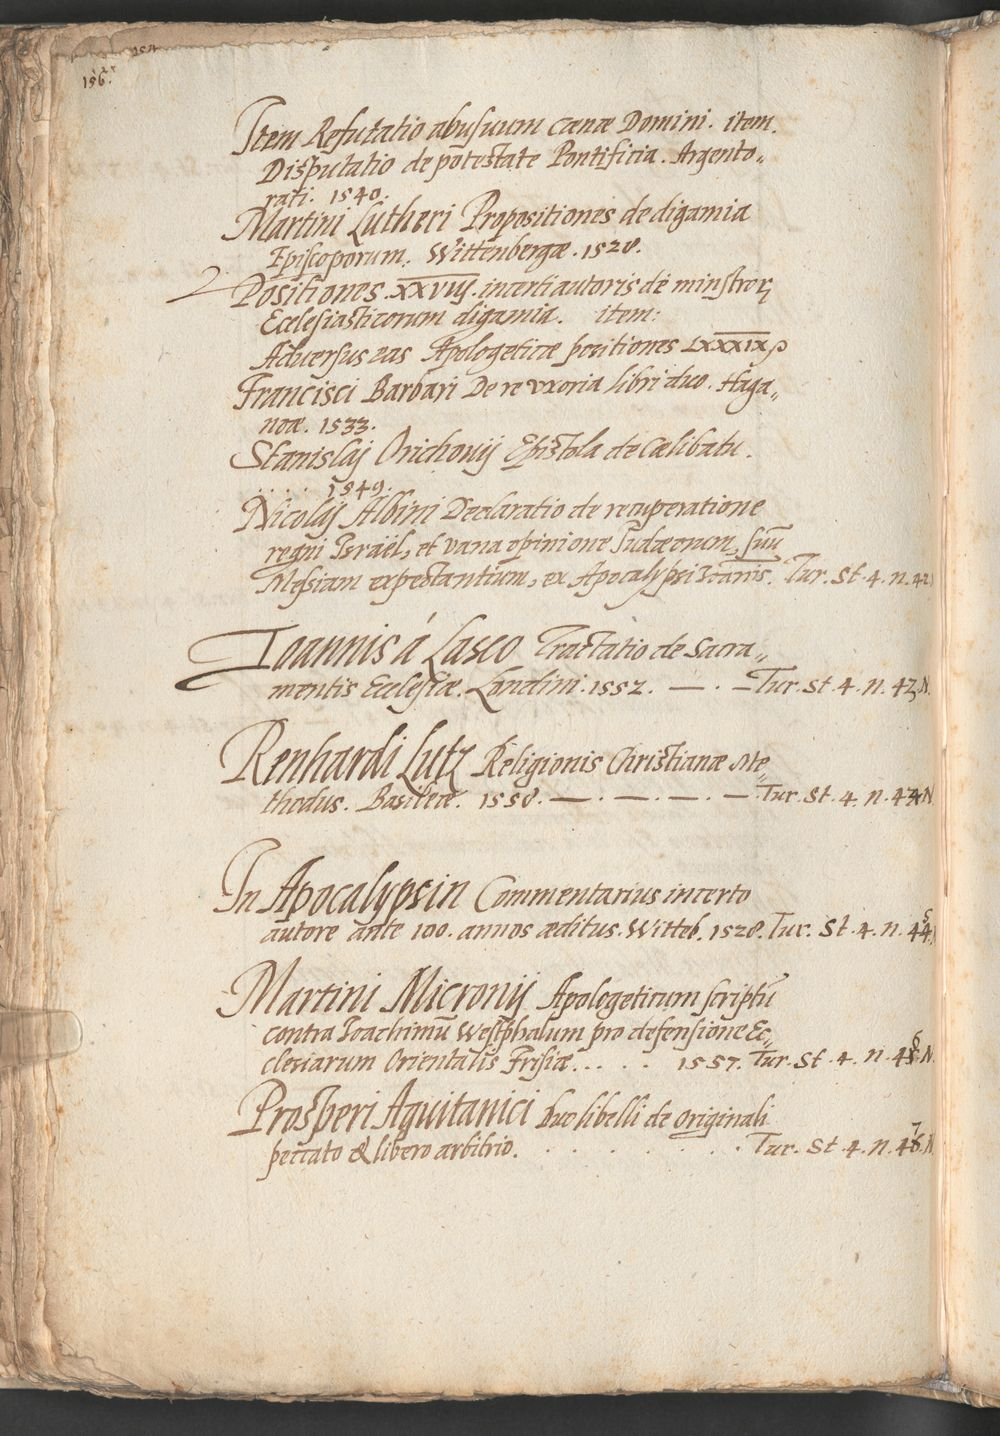 156.
Item Refutatio abusuum cænæ Domini. item.
Disputatio de potestate Pontificia. Argento„
rati. 1540.
Martini Lutheri Propositiones de digamia
Episcoporum. Wittenbergæ. 1528.
2 Positiones .XXVIIJ. incerti autoris de ministror
Ecclesiasticorum digamia. item:
Adversus eas Apologeticæ positiones LXXXIX
Francisci Barbari De re vxoria libri duo. Haga„
noæ. 1533.
Stanislaj Orichovij Epistola de Cælibatu.
. . . . 1549.
Nicolaj Albini Declaratio de recuperatione
regni Israël, et vana opinione Judæorum, suū
Messiam expectantium, ex Apocalypsi Ioanis. Tur. St. 4. n. 42
Ioannis á Lasco Tractatio de Sacra„
mentis Ecclesiæ. Londini. 1552. — . — Tur. St. 4. n. 43 N.
Renhardi Lutz Religionis Christianæ Me„
thodus. Basileæ. 1558. — . — . — . — Tur. St. 4. n. 44 N
In Apocalypsin Commentarius incerto
autore ante 100. annos æditus. Witteb. 1528. Tur. St. 4. n. 45
Martini Micronij Apologeticum scriptū
contra Ioachimū Westphalum pro defensione Ec„
clesiarum Orientalis Frisiæ. . . . . 1557. Tur. St. 4. n. 46 N.
Prosperi Aquitanici duo libelli de originali
peccato & libero arbitrio. . . . . . . . Tur. St. 4. n. 47 N.